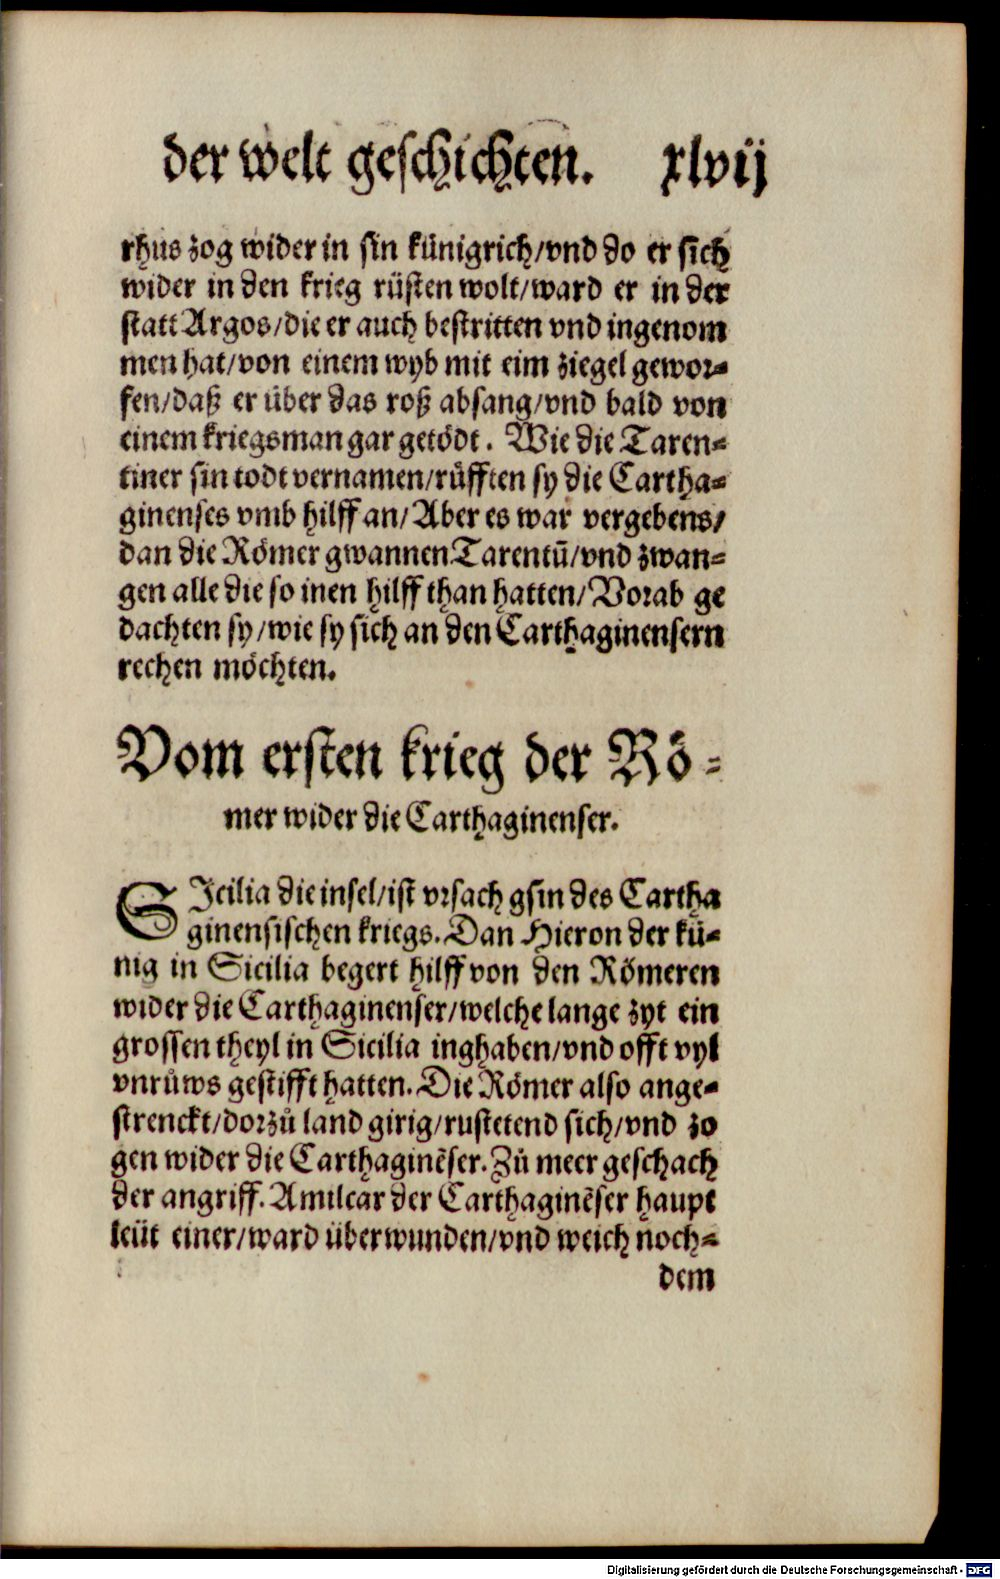 der welt geschichten. xlvij
rhus zog wider in sin künigrich/vnd do er sich
wider in den krieg rüsten wolt/ward er in der
statt Argos/die er auch bestritten vnd ingenom
men hat/von einem wyb mit eim ziegel gewor⸗
fen/daß er über das roß absang/vnd bald von
einem kriegsman gar getödt. Wie die Taren⸗
tiner sin todt vernamen/růfften sy die Cartha⸗
ginenses vmb hilff an/Aber es war vergebens/
dan die Römer gwannen Tarentū/vnd zwan⸗
gen alle die so inen hilff than hatten/Vorab ge
dachten sy/wie sy sich an den Carthaginensern
rechen möchten.
Vom ersten krieg der Rö⸗
mer wider die Carthaginenser.
SIcilia die insel/ist vrsach gsin des Cartha
ginensischen kriegs. Dan Hieron der kü⸗
nig in Sicilia begert hilff von den Römeren
wider die Carthaginenser/welche lange zyt ein
grossen theyl in Sicilia inghaben/vnd offt vyl
vnrůws gestifft hatten. Die Römer also ange⸗
strenckt/dorzů land girig/rustetend sich/vnd zo
gen wider die Carthaginēser. Zů meer geschach
der angriff. Amilcar der Carthaginēser haupt
leüt einer/ward überwunden/vnd weich noch⸗
dem
Digitalisierung gefördert durch die Deutsche Forschungsgemeinschaft - DFG